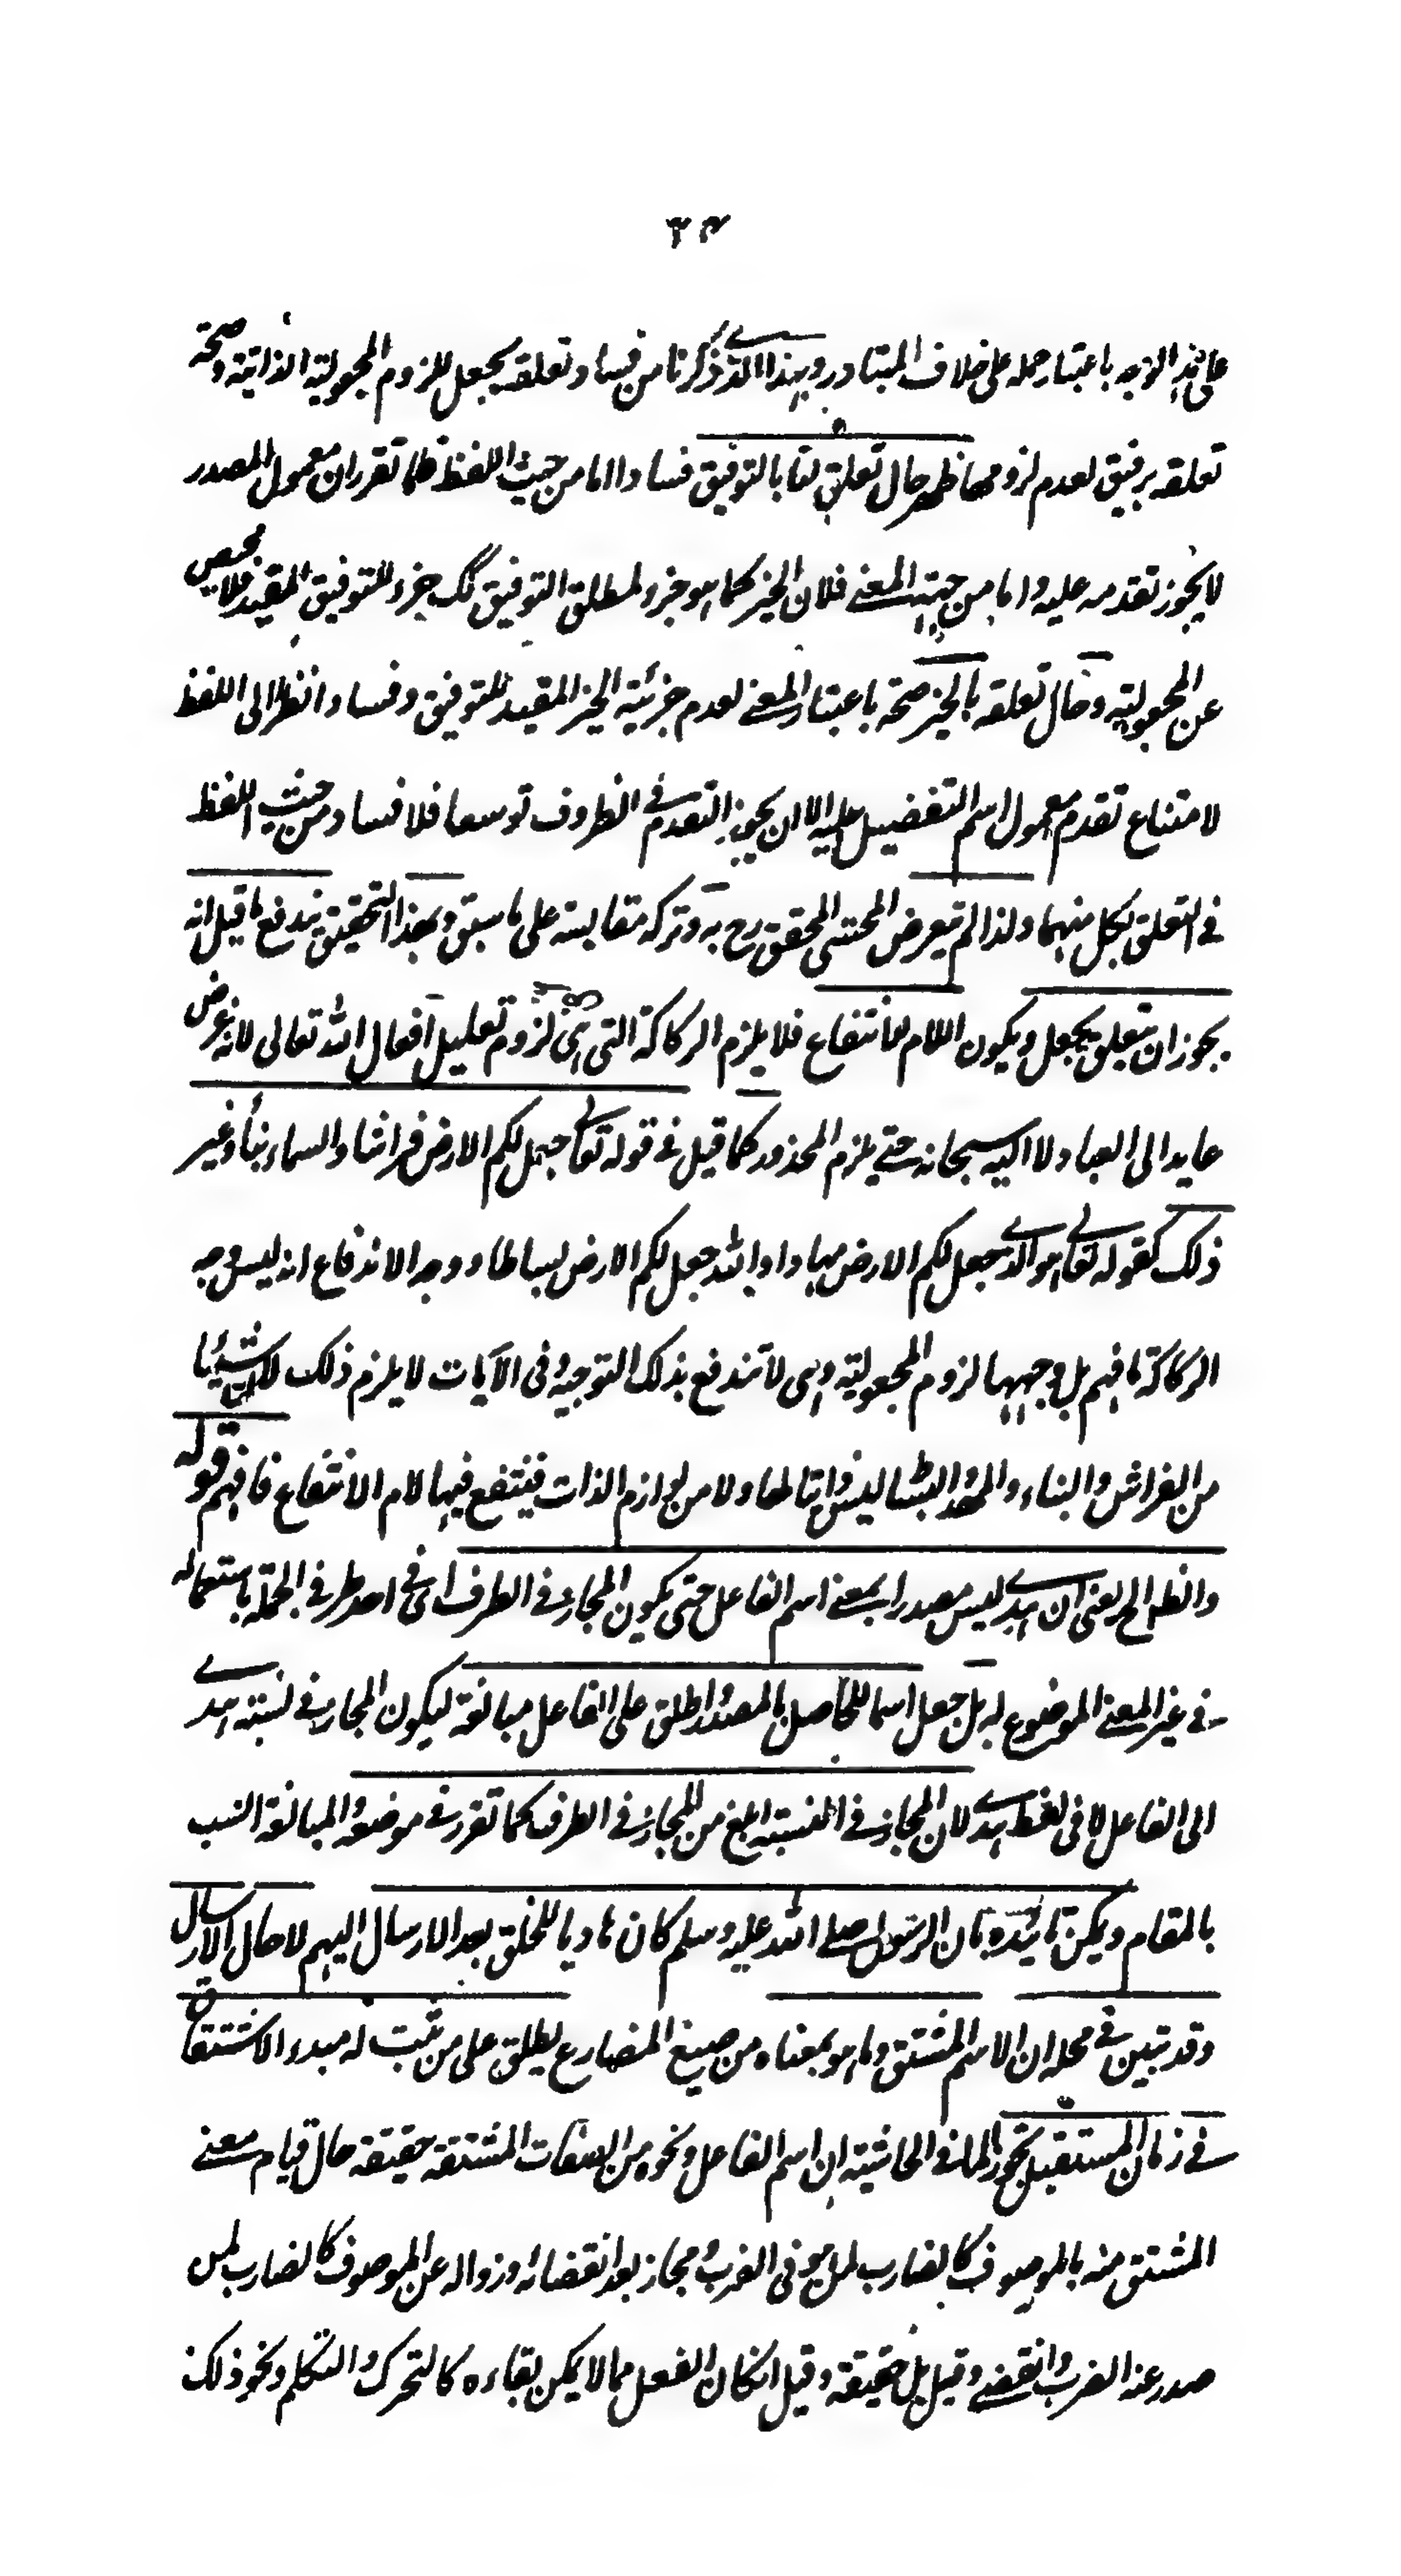 ٣٤
على هذا الوجه باعتبار حمله على خلاف المتبادر وبهذا الذي ذكرنا من فساد تعلقه بجعل للزوم المجعولية الذاتية وصحة
تعلقه برفيق لعدم لزومها ظهر حال تعلق لنا بالتوفيق فسادا اما من حيث اللفظ فلما تقرر ان معمول المصدر
لا يجوز تقدمه عليه واما من جهة المعنى فلان الخير كما هو جزء لمطلق التوفيق كك جزء للتوفيق المقيد فلا محيص
عن المجعولية وحال تعلقه بالخير صحة باعتبار المعنى لعدم جزئية الخير المقيد للتوفيق وفسادا نظرا الى اللفظ
لامتناع تقدم معمول اسم التفضيل عليه الا ان يجوز التقدم في الظروف توسعا فلا فساد من حيث اللفظ
في التعلق بكل منهما ولذا لم يتعرض المحشى المحقق رح به وتركه مقايسة على ما سبق وبهذا التحقيق يندفع ما قيل انه
يجوز ان يتعلق بجعل ويكون اللام للانتفاع فلا يلزم الركاكة التى هى لزوم تعليل افعال الله تعالى لانه غرض
عايد الى العباد لا اليه سبحانه حتى يلزم المحذور كما قيل في قوله تعالى جعل لكم الارض فراشا والسماء بناء وغير
ذلك كقوله تعالى هو الذي جعل لكم الارض مهادا والله جعل لكم الارض بساطا ووجه الاندفاع انه ليس وجه
الركاكة ما فهم بل وجهها لزوم المجعولية وهى لا تندفع بذلك التوجيه وفى الآيات لا يلزم ذلك لان شيئا
من الفراش والبناء والمهد والبساط ليس ذاتيا لها ولا من لوازم الذات فينتفع فيها لام الانتفاع فافهم قوله
والظ الخ يعنى ان هدى ليس مصدرا بمعنى اسم الفاعل حتى يكون المجاز في الطرف اى في احد طرفى الجملة باستعماله
في غير المعنى الموضوع له بل جعل اسما للحاصل بالمصدر واطلق على الفاعل مبالغة ليكون المجاز في نسبته هدى
الى الفاعل لا فى لفظ هدى لان المجاز في النسبة ابلغ من المجاز في الطرف كما تقرر في موضعه والمبالغة انسب
بالمقام ويمكن تائيده بان الرسول صلى الله عليه وسلم كان هاديا للخلق بعد الارسال اليهم لا حال الارسال
وقد تبين في محله ان الاسم المشتق وما هو بمعناه من صيغ المضارع يطلق على من ثبت له مبدء الاشتقاق
في زمان المستقبل تجوزا لما في الحاشية ان اسم الفاعل ونحوه من الصفات المشتقة حقيقة حال قيام معنى
المشتق منه بالموصوف كالضارب لمن هو فى الضرب ومجاز بعد انقضائه وزواله عن الموصوف كالضارب لمن
صدر عنه الضرب وانقضى وقيل بل حقيقة وقيل ان كان الفعل مما لا يمكن بقاءه كالتحرك والتكلم ونحو ذلك